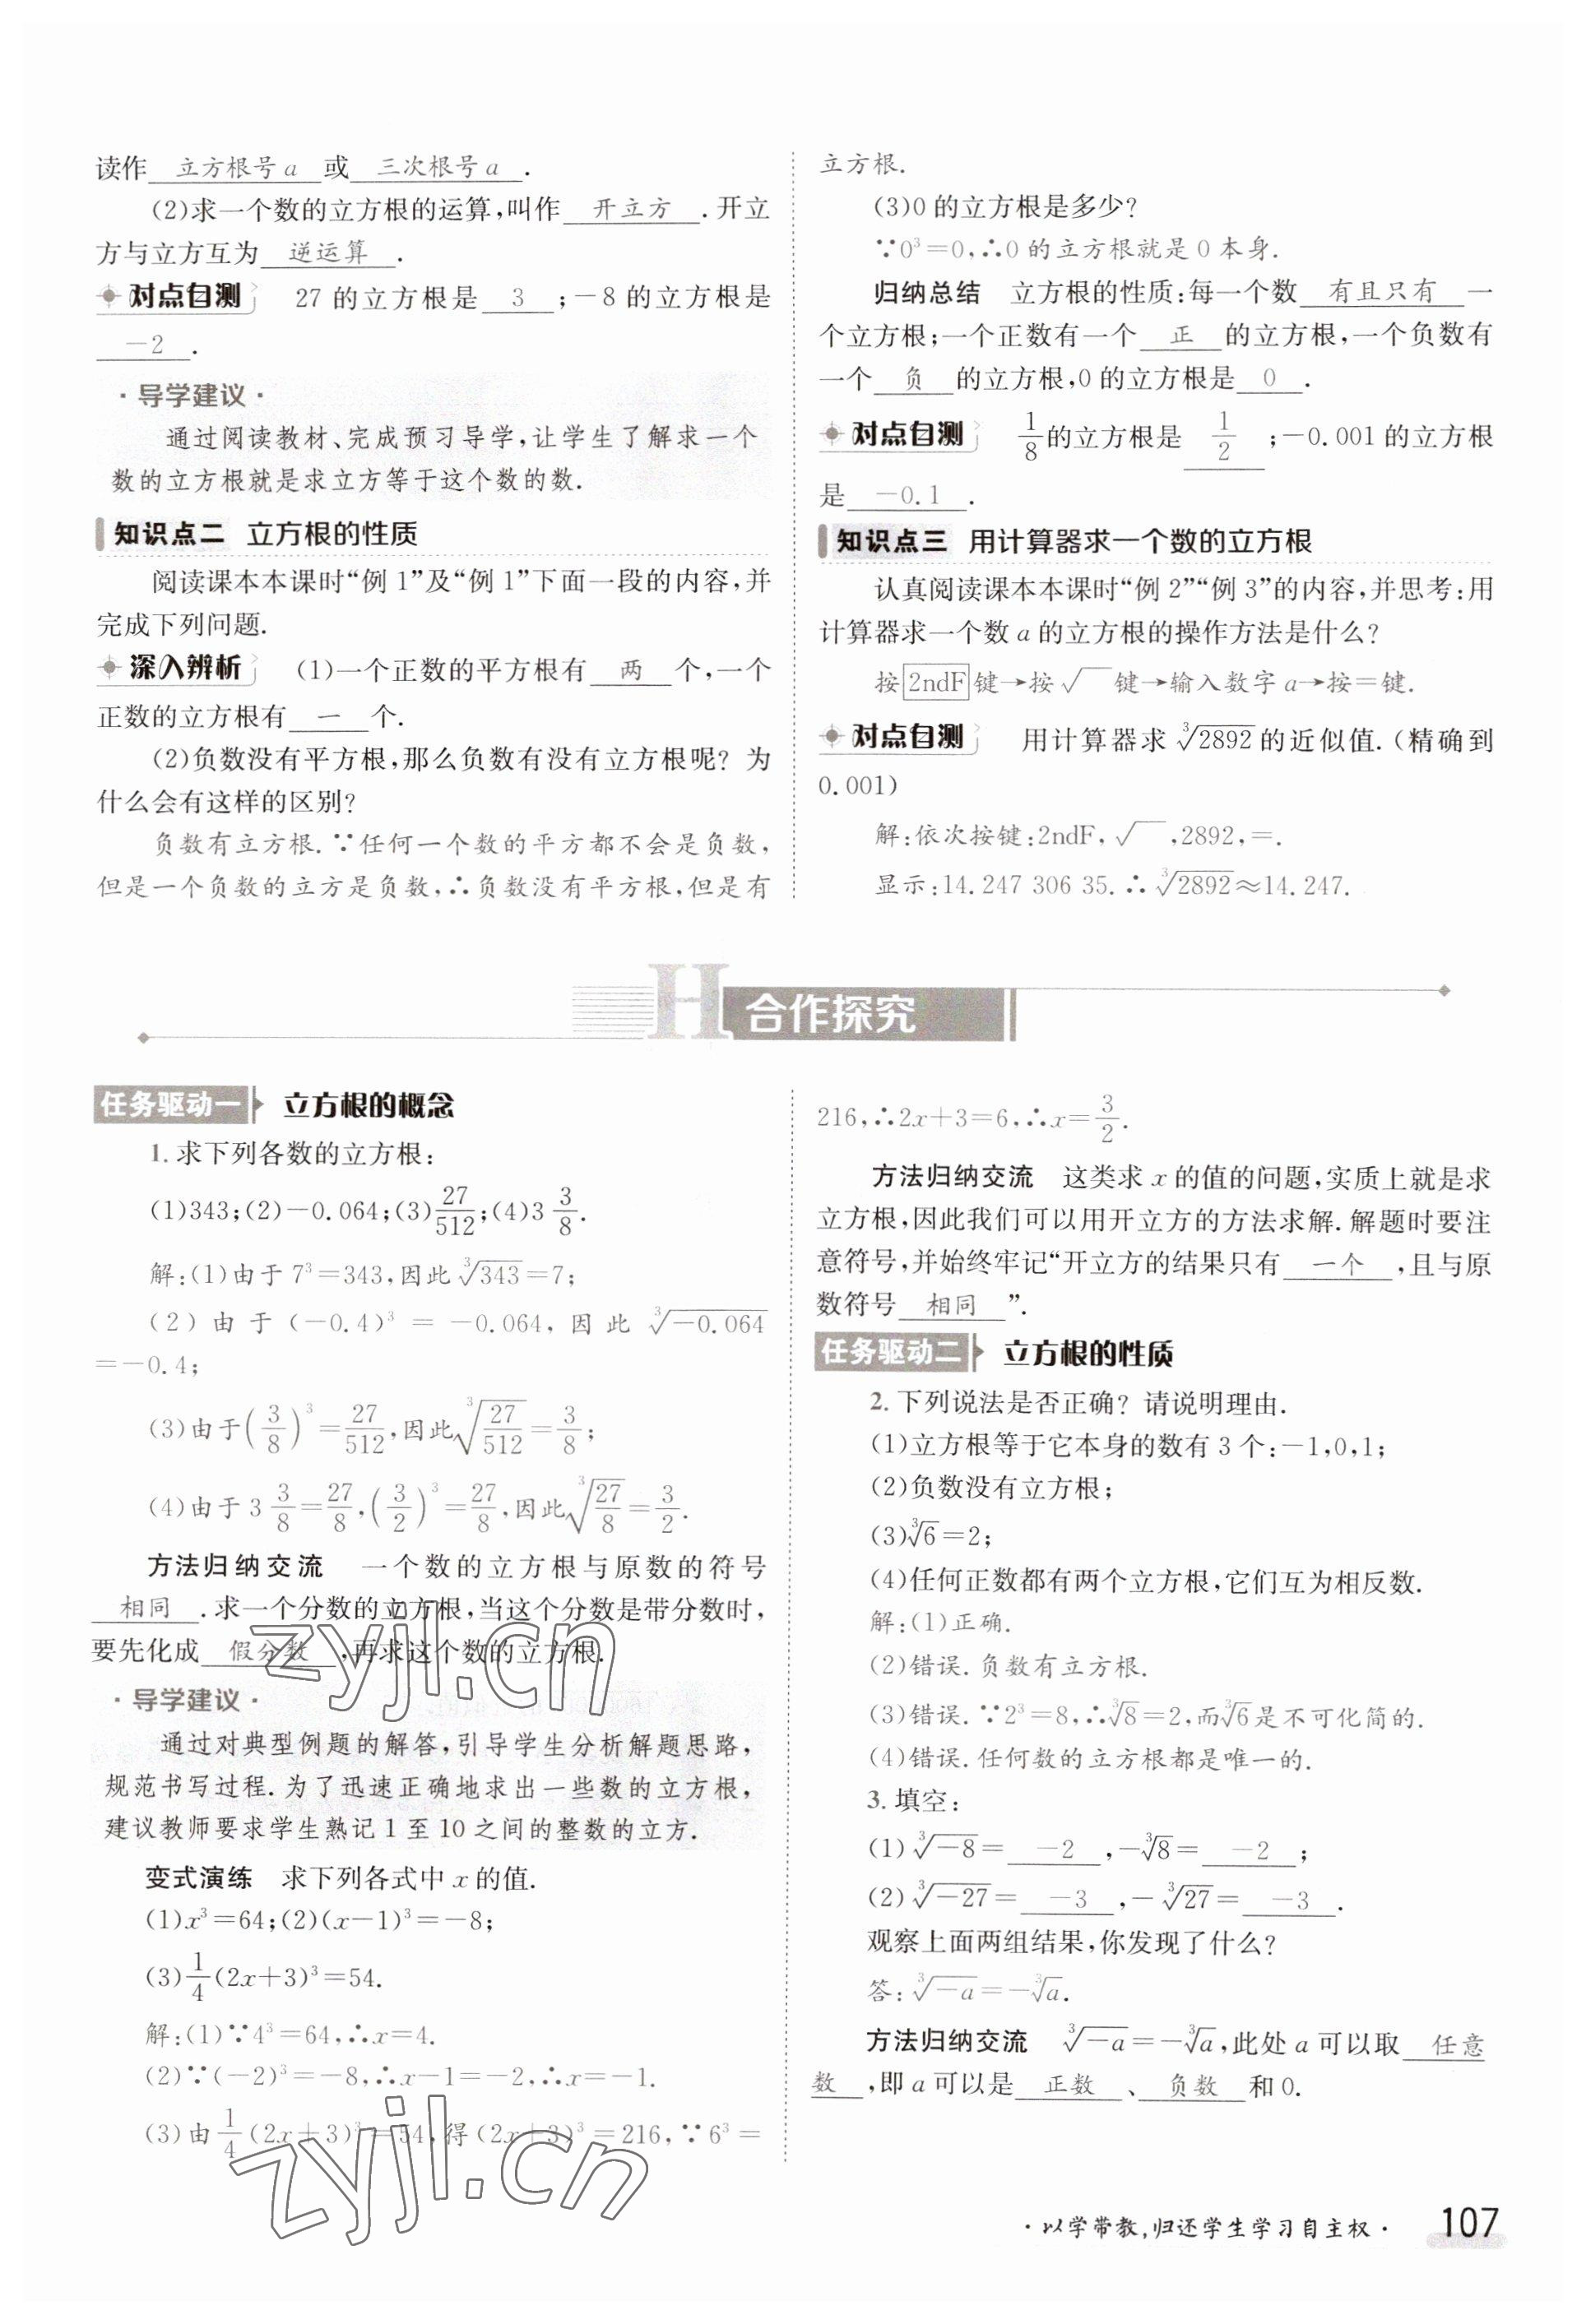 读作 立方根号 a 或 三次根号 a .
(2)求一个数的立方根的运算,叫作 开立方 .开立
方与立方互为 逆运算 .
对点自测 27 的立方根是 3 ;-8 的立方根是
-2 .
·导学建议·
通过阅读教材、完成预习导学,让学生了解求一个
数的立方根就是求立方等于这个数的数.
知识点二 立方根的性质
阅读课本本课时“例 1”及“例 1”下面一段的内容,并
完成下列问题.
深入辨析 (1)一个正数的平方根有 两 个,一个
正数的立方根有 一 个.
(2)负数没有平方根,那么负数有没有立方根呢? 为
什么会有这样的区别?
负数有立方根. ∵任何一个数的平方都不会是负数,
但是一个负数的立方是负数,∴负数没有平方根,但是有
立方根.
(3)0 的立方根是多少?
∵0³=0,∴0 的立方根就是 0 本身.
归纳总结 立方根的性质:每一个数 有且只有 一
个立方根;一个正数有一个 正 的立方根,一个负数有
一个 负 的立方根,0 的立方根是 0 .
对点自测 1/8 的立方根是 1/2 ;-0.001 的立方根
是 -0.1 .
知识点三 用计算器求一个数的立方根
认真阅读课本本课时“例 2”“例 3”的内容,并思考:用
计算器求一个数 a 的立方根的操作方法是什么?
按 2ndF 键→按 √ 键→输入数字 a→按=键.
对点自测 用计算器求 ∛2892 的近似值.(精确到
0.001)
解:依次按键:2ndF, √ ,2892,=.
显示:14.247 306 35.∴∛2892≈14.247.
H 合作探究
任务驱动一 立方根的概念
1.求下列各数的立方根:
(1)343;(2)-0.064;(3)27/512;(4)3 3/8.
解:(1)由于 7³=343,因此 ∛343=7;
(2)由于(-0.4)³=-0.064,因此 ∛-0.064
=-0.4;
(3)由于(3/8)³=27/512,因此∛(27/512)=3/8;
(4)由于 3 3/8=27/8,(3/2)³=27/8,因此∛(27/8)=3/2.
方法归纳交流 一个数的立方根与原数的符号
相同 .求一个分数的立方根,当这个分数是带分数时,
要先化成 假分数 ,再求这个数的立方根.
·导学建议·
通过对典型例题的解答,引导学生分析解题思路,
规范书写过程.为了迅速正确地求出一些数的立方根,
建议教师要求学生熟记 1 至 10 之间的整数的立方.
变式演练 求下列各式中 x 的值.
(1)x³=64;(2)(x-1)³=-8;
(3)1/4(2x+3)³=54.
解:(1)∵4³=64,∴x=4.
(2)∵(-2)³=-8,∴x-1=-2,∴x=-1.
(3)由1/4(2x+3)³=54,得(2x+3)³=216,∵6³=
216,∴2x+3=6,∴x=3/2.
方法归纳交流 这类求 x 的值的问题,实质上就是求
立方根,因此我们可以用开立方的方法求解.解题时要注
意符号,并始终牢记“开立方的结果只有 一个 ,且与原
数符号 相同 ”.
任务驱动二 立方根的性质
2.下列说法是否正确? 请说明理由.
(1)立方根等于它本身的数有 3 个:-1,0,1;
(2)负数没有立方根;
(3)∛6=2;
(4)任何正数都有两个立方根,它们互为相反数.
解:(1)正确.
(2)错误.负数有立方根.
(3)错误.∵2³=8,∴∛8=2,而∛6是不可化简的.
(4)错误.任何数的立方根都是唯一的.
3.填空:
(1)∛-8= -2 ,-∛8= -2 ;
(2)∛-27= -3 ,-∛27= -3 .
观察上面两组结果,你发现了什么?
答:∛-a=-∛a.
方法归纳交流 ∛-a=-∛a,此处 a 可以取 任意
数 ,即 a 可以是 正数 、 负数 和 0.
zyjl.cn
zyjl.cn
·以学带教,归还学生学习自主权· 107